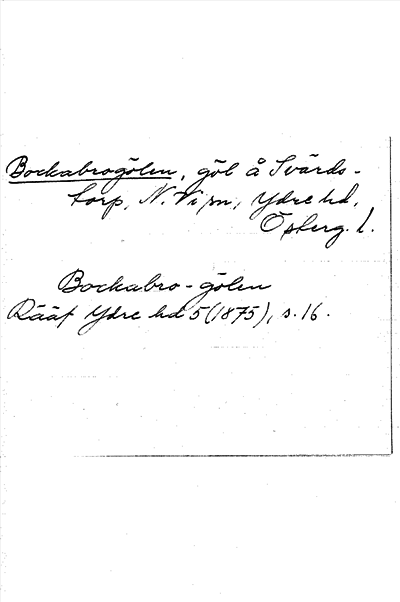 Bockabrogölen, göl å Svärds-
torp, N. Vi sn, Ydre hd,
Österg. l.
Bockabro-gölen
Rääf Ydre hd 5(1875), s. 16.